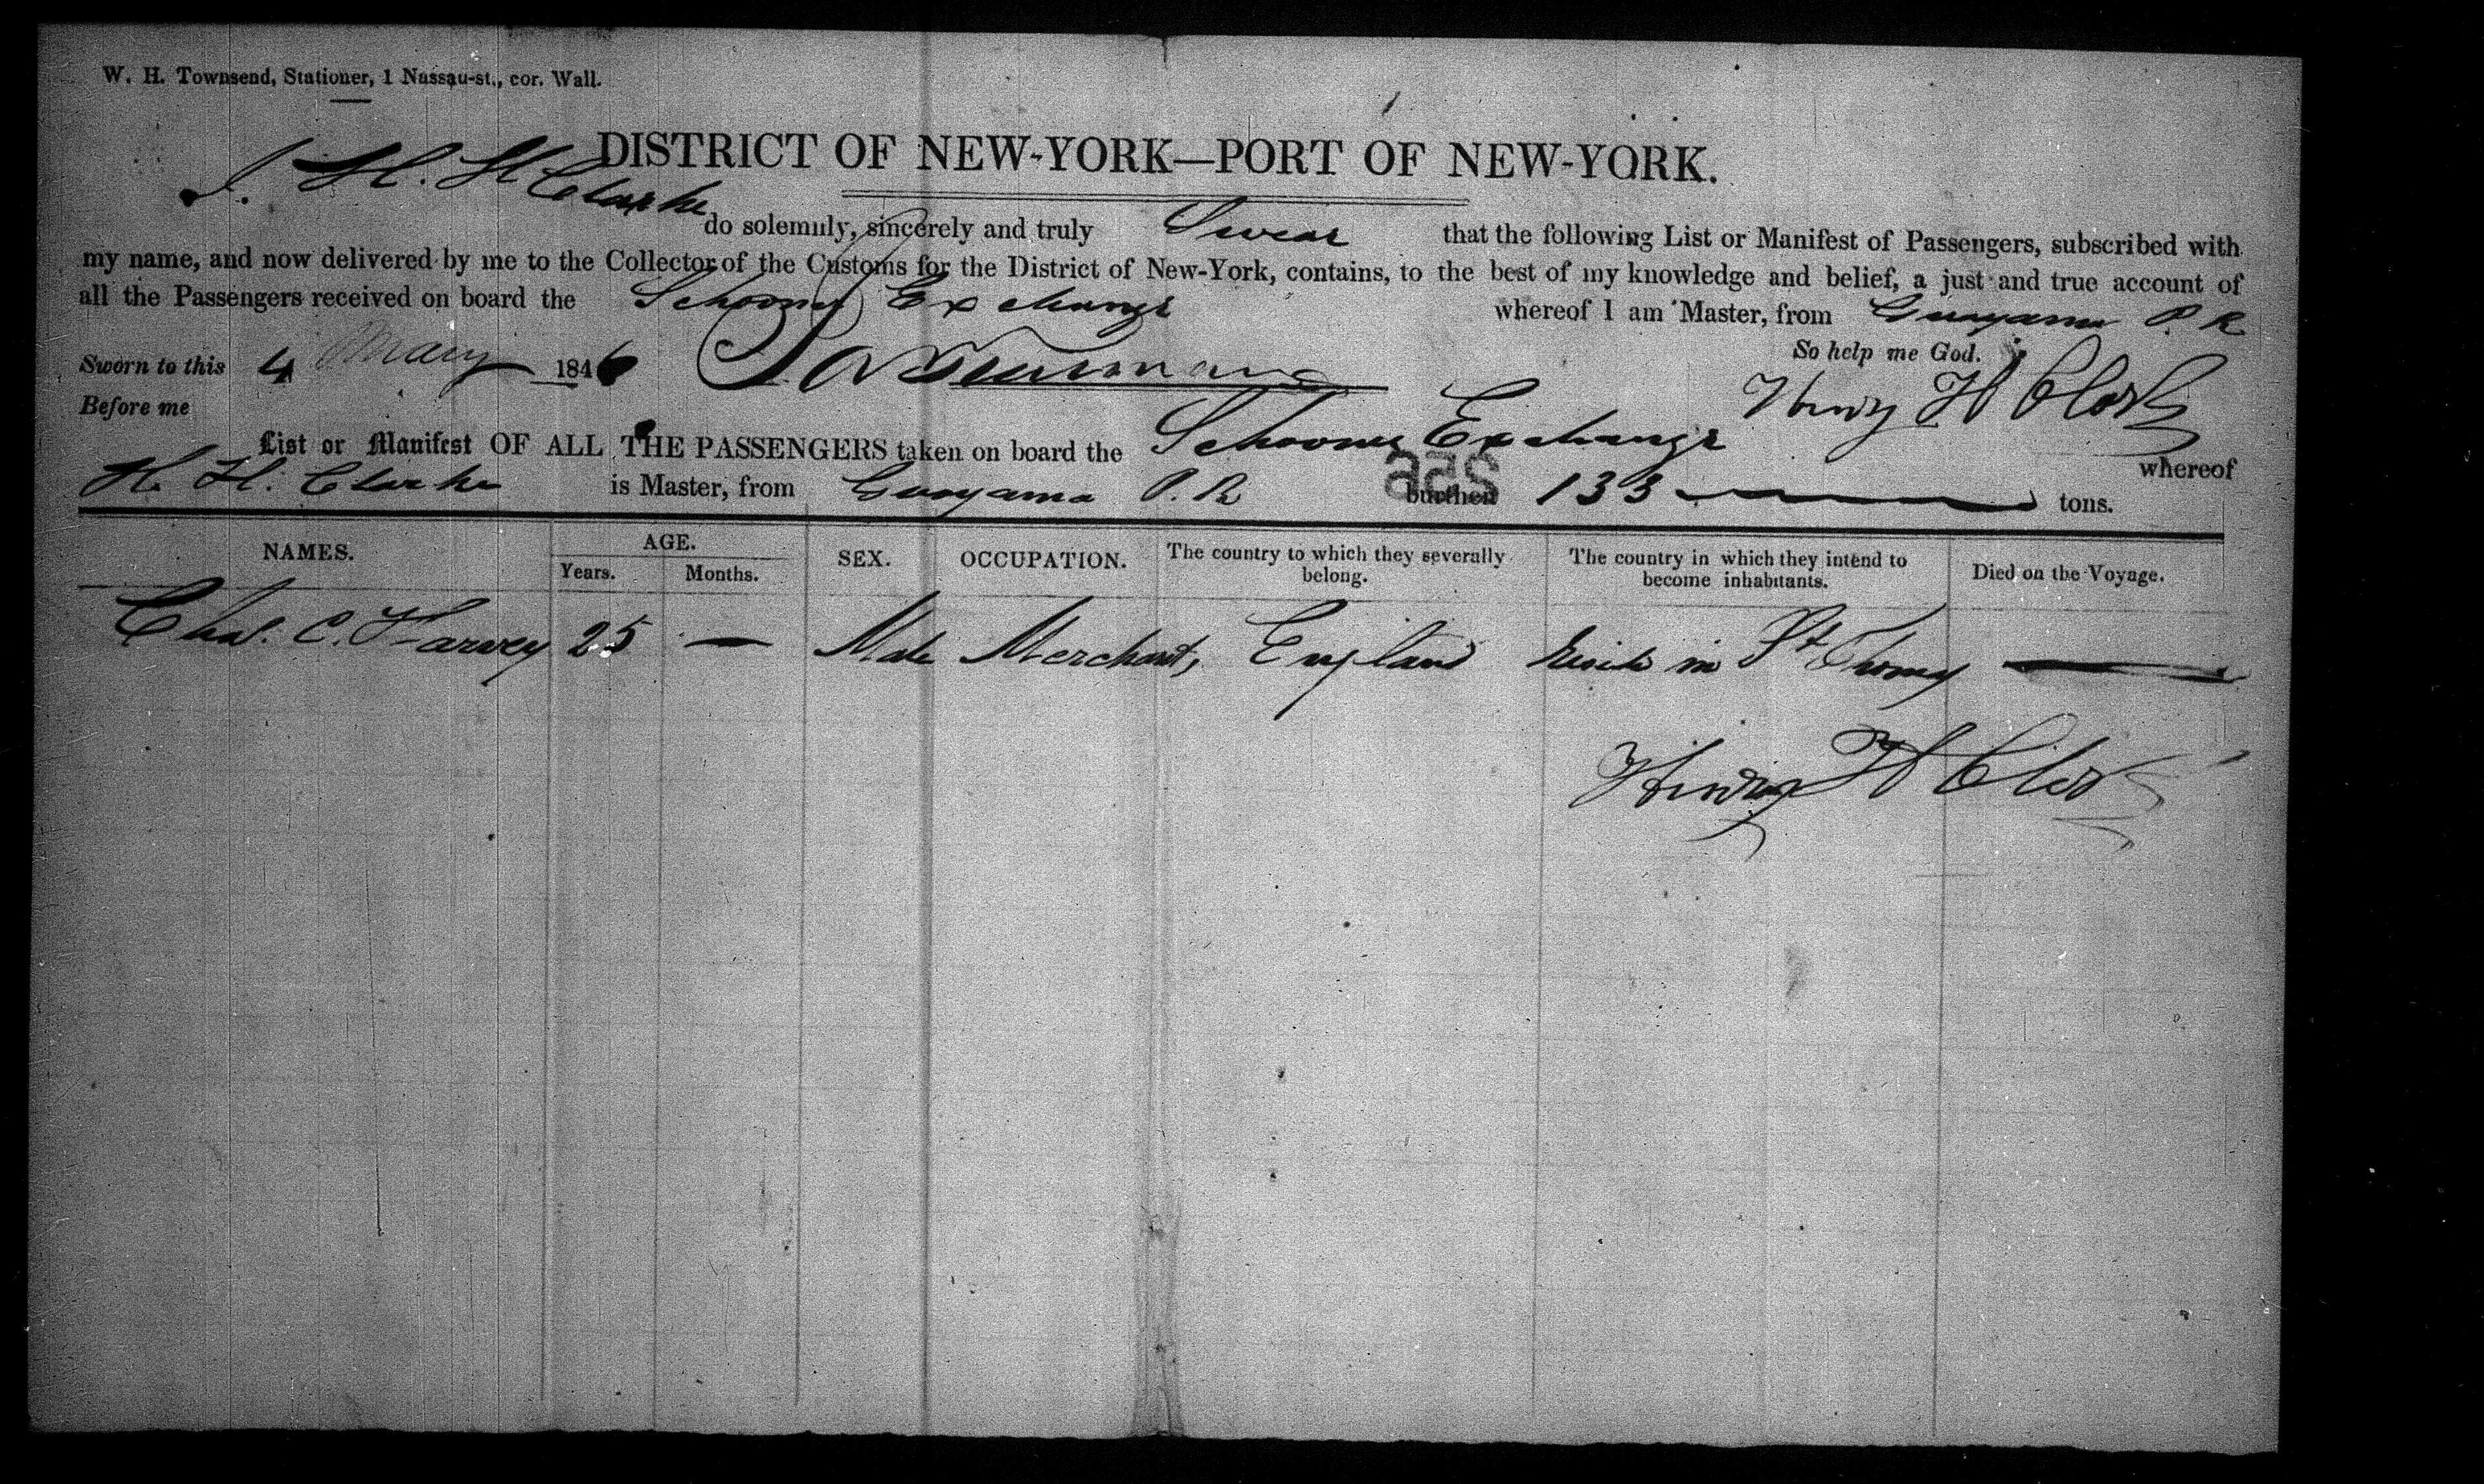 W. H. Townsend, Stationer, 1 Nassau-st., cor. Wall.
DISTRICT OF NEW-YORK—PORT OF NEW-YORK.
I. H. H Clarke do solemnly, sincerely and truly Swear that the following List or Manifest of Passengers, subscribed with
my name, and now delivered by me to the Collector of the Customs for the District of New-York, contains, to the best of my knowledge and belief, a just and true account of
all the Passengers received on board the Schooner Exchange whereof I am Master, from Guayama P. R
So help me God.
Sworn to this 4 May 1846
Henry H Clark
Before me
List or Manifest OF ALL THE PASSENGERS taken on board the Schooner Exchange whereof
H. H. Clarke is Master, from Guayama P. R burthen 133 tons.
NAMES. AGE. SEX. OCCUPATION. The country to which they severally belong. The country in which they intend to become inhabitants. Died on the Voyage.
Years. Months.
Chas. C. Harvey 25 — Male Merchant, England Reside in St Thomas —
Henry H Clark